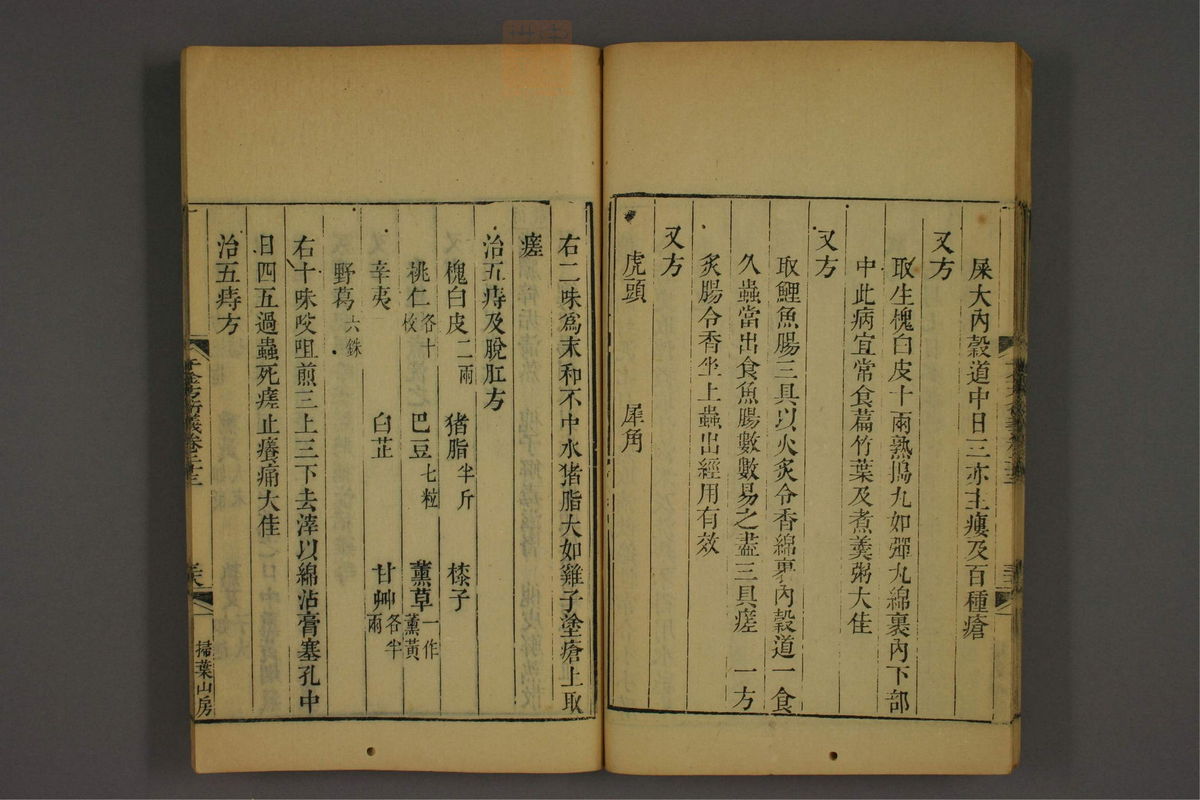 屎大內穀道中日三亦主瘻及百種瘡
又方
取生槐白皮十兩熟搗丸如彈丸綿裹內下部
中此病宜常食萹竹葉及煮羹粥大佳
又方
取鯉魚腸三具以火炙令香綿裹內穀道一食
久蟲當出食魚腸數數易之盡三具瘥 一方
炙腸令香坐上蟲出經用有效
又方
虎頭 犀角
右二味爲末和不中水猪脂大如雞子塗瘡上取
瘥
治五痔及脫肛方
槐白皮二兩 猪脂半斤 㯃子
桃仁各十枚 巴豆七粒 薰草一作薰黃
辛夷 白芷 甘艸各半兩
野葛六銖
右十味㕮咀煎三上三下去滓以綿沾膏塞孔中
日四五過蟲死瘥止癢痛大佳
治五痔方
千金方衍義卷二十三
掃葉山房